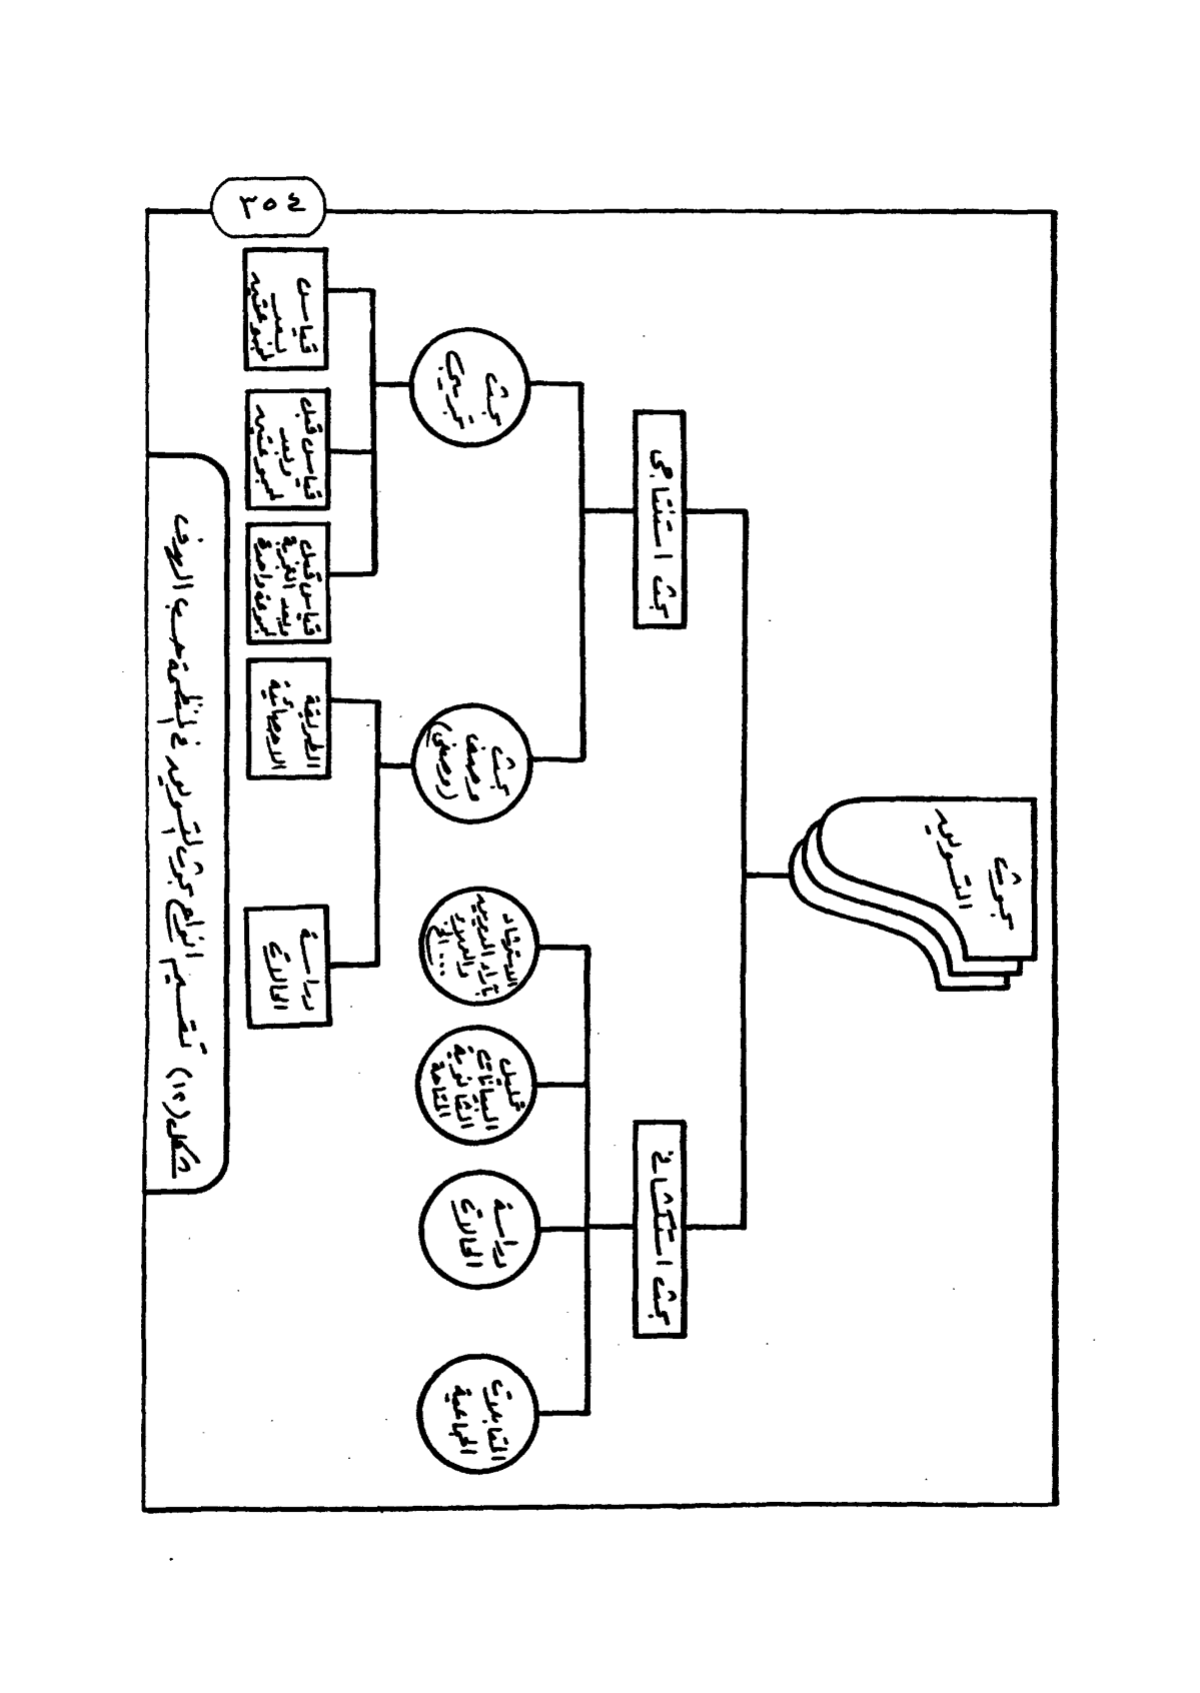 ٣٥٤
بحوث
التسويق
بحث استكشافى
بحث استنتاجى
المقابلات
الجماعية
دراسة
الحالات
تحليل
البيانات
الثانوية
المتاحة
الاسترشاد
بآراء المديرين
والعملاء
...الخ
بحث
وصفى
بحث
تجريبى
دراسة
الحالات
الطريقة
الاحصائية
قياس قبل
وبعد التجربة
لمجموعة واحدة
قياس قبل
وبعد
لمجموعتين
قياس
بعد
لمجموعتين
شكل (١٢) تقسيم أنواع بحوث التسويق فى المنظمة حسب الهدف